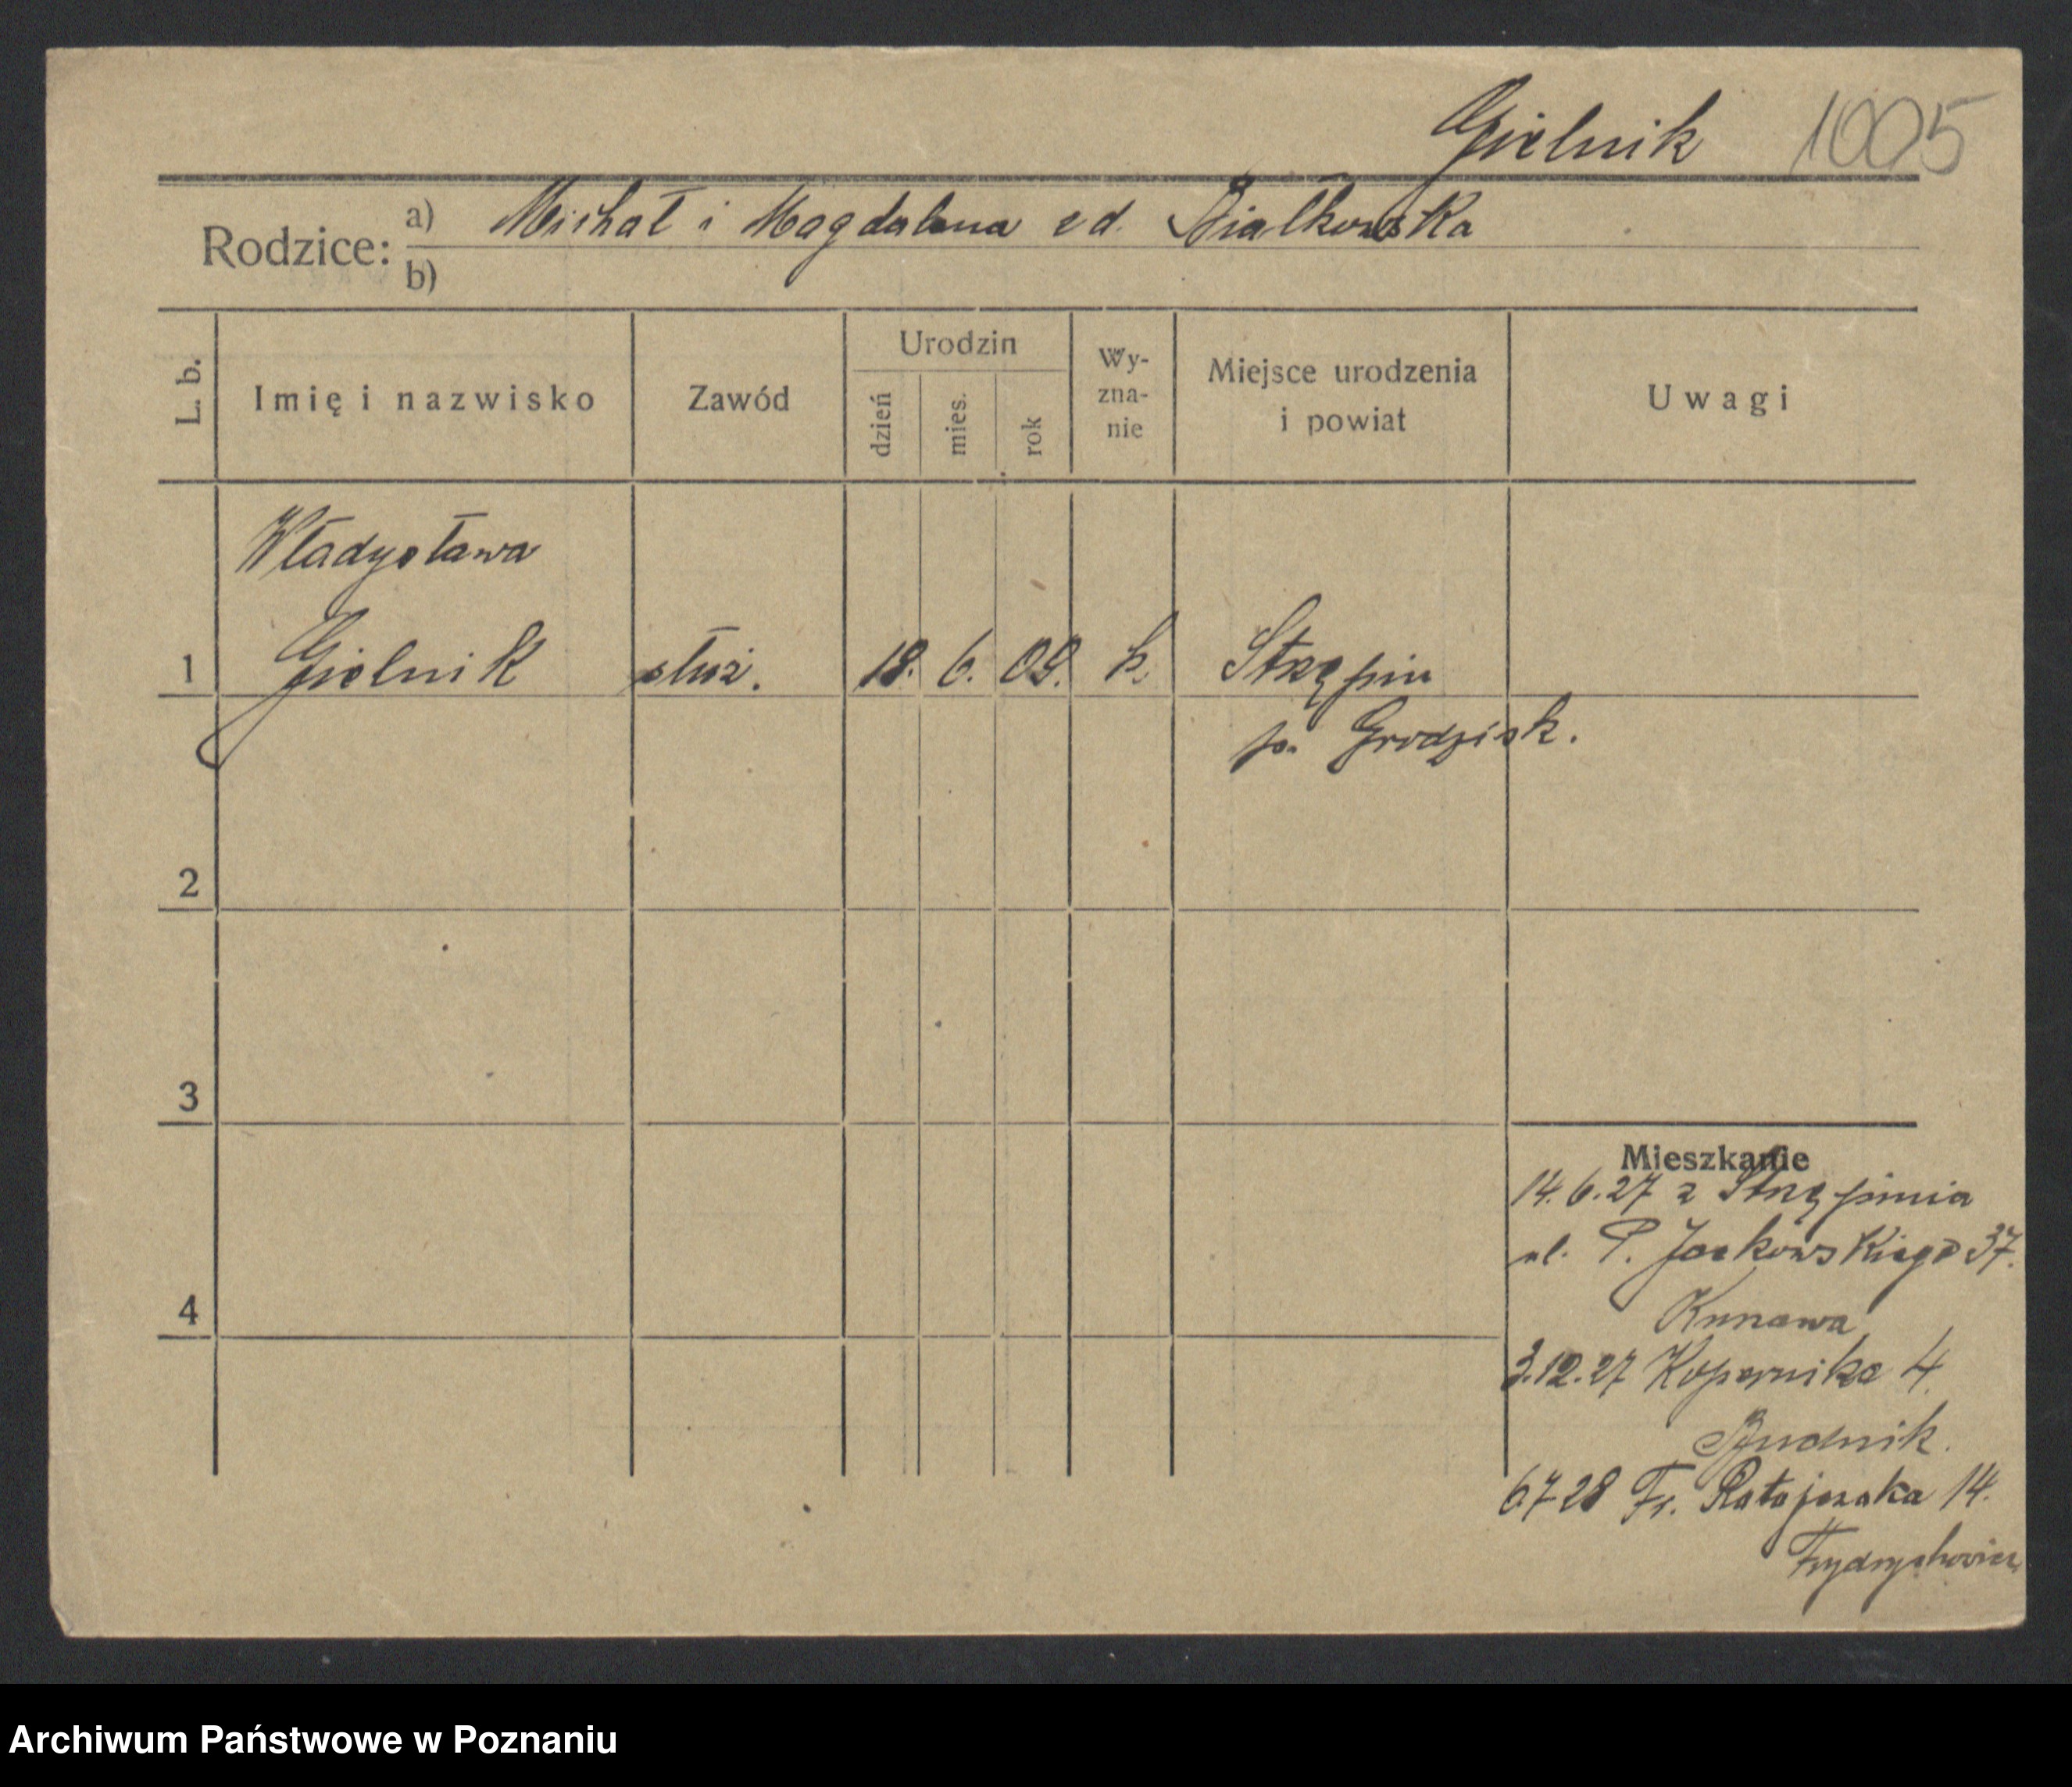 Gielnik 1005
Rodzice: a) Michał i Magdalena zd. Białkowska
b)
L. b.
Imię i nazwisko
Zawód
Urodzin
dzień
mies.
rok
Wy-
zna-
nie
Miejsce urodzenia
i powiat
Uwagi
Władysława
1 Gielnik służ. 18. 6. 09. k. Strzępin
p. Grodzisk.
2
3
4
Mieszkanie
14.6.27 z Strzępinia
ul. P. Jackowskiego 37.
3.12.27 Kopernika 4.
Budnik.
6 7 28 Fr. Ratajczaka 14.
Frydrychowicz
Archiwum Państwowe w Poznaniu